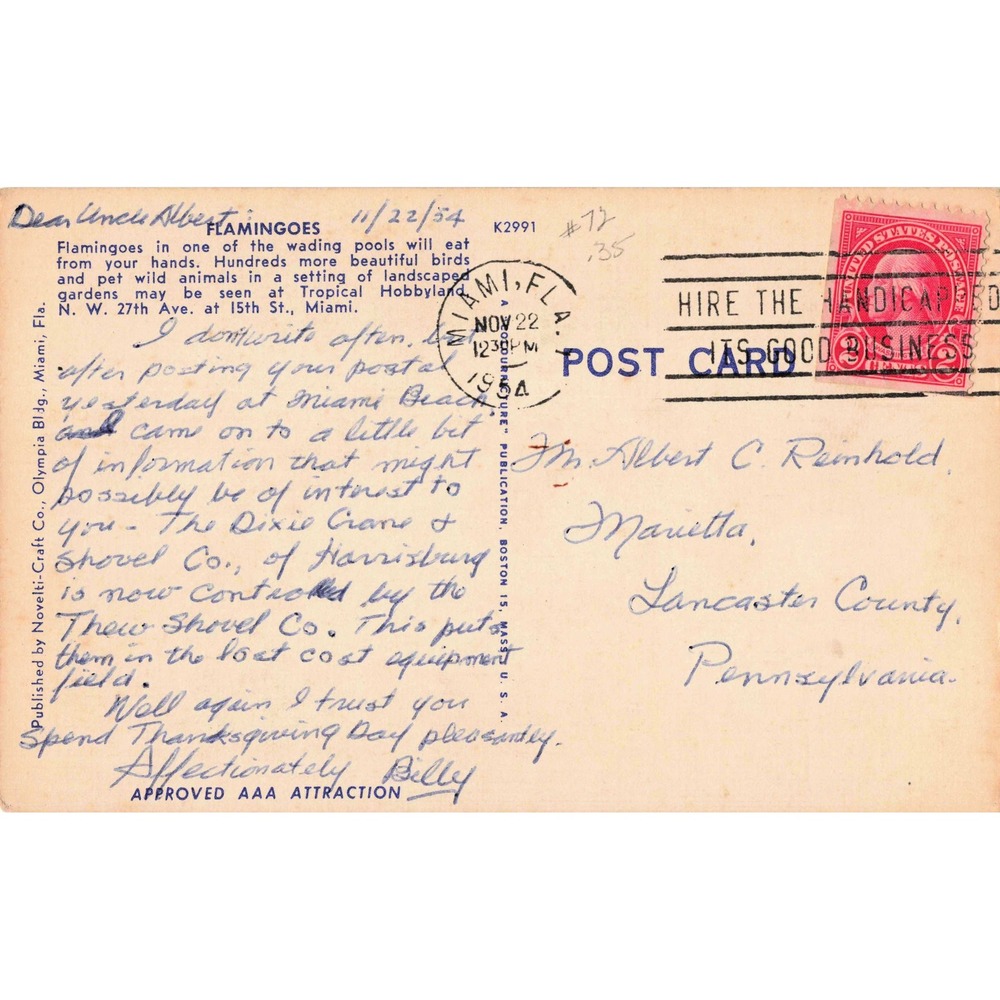 Dear Uncle Albert: 11/22/54
FLAMINGOES K2991
Flamingoes in one of the wading pools will eat
from your hands. Hundreds more beautiful birds
and pet wild animals in a setting of landscaped
gardens may be seen at Tropical Hobbyland,
N. W. 27th Ave. at 15th St., Miami.
I don't write often, but
after posting your postal
yesterday at Miami Beach,
and came on to a little bit
of information that might
possibly be of interest to
you - The Dixie Crane &
Shovel Co., of Harrisburg
is now controlled by the
Thew Shovel Co. This puts
them in the cost equipment
field.
Well again I trust you
Spend Thanksgiving Day pleasantly.
Affectionately Billy
APPROVED AAA ATTRACTION
Published by Novelti-Craft Co., Olympia Bldg., Miami, Fla.
A "COLOURPICTURE" PUBLICATION, BOSTON 15, MASS., U. S. A.
#72
.35
MIAMI, FLA.
NOV 22
12 30 PM
1954
HIRE THE HANDICAPPED
ITS GOOD BUSINESS
UNITED STATES POSTAGE
2 CENTS 2
POST CARD
Mr. Albert C. Reinhold,
Marietta,
Lancaster County,
Pennsylvania.